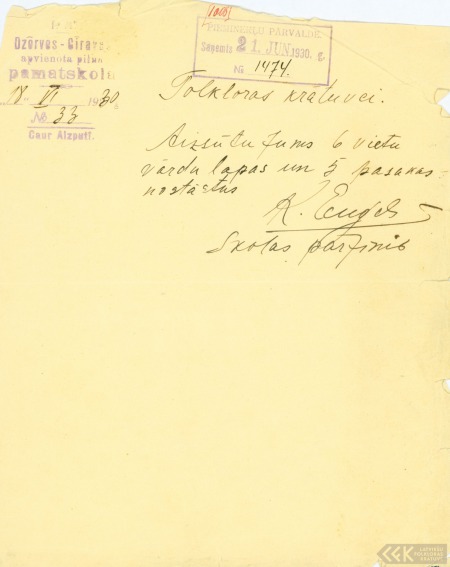 [1060]
Dzērves-Giravas
apvienotā pilna
pamatskola
18. VI 1930.
№ 33
Caur Aizputi.
PIEMINEKĻU PĀRVALDE
Saņemts 21. JUN 1930.
№ 1474.
Folkloras krātuvei.
Aizsūtu Jums 6 vietu
vārdu lapas un 5 pasakas-
nostāstus
K. Engels
Skolas pārzinis
LATVIEŠU
FOLKLORAS
KRĀTUVE